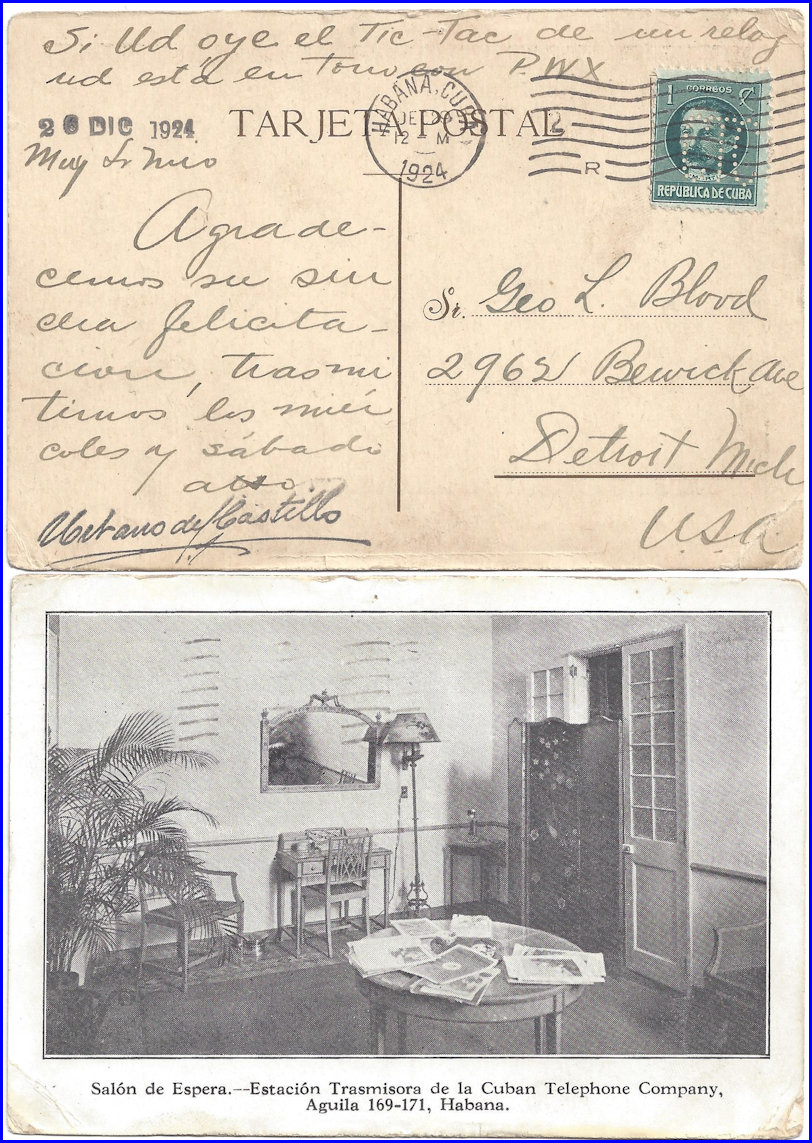 Si Ud oye el Tic-Tac de un reloj
ud está en tono con P.WX
26 DIC 1924
TARJETA POSTAL
HABANA, CUBA
12 M
1924
2
R
CORREOS
1 ¢
REPÚBLICA DE CUBA
Muy Sr mio
Agrade-
cemos su sin
cera felicita-
cion, trasmi
timos los miér
coles y sábado
atto
Urbano del Castillo
Sr. Geo L. Blood
2962 Bewick Ave
Detroit Mich
U.S.A.
Salón de Espera.--Estación Trasmisora de la Cuban Telephone Company,
Aguila 169-171, Habana.